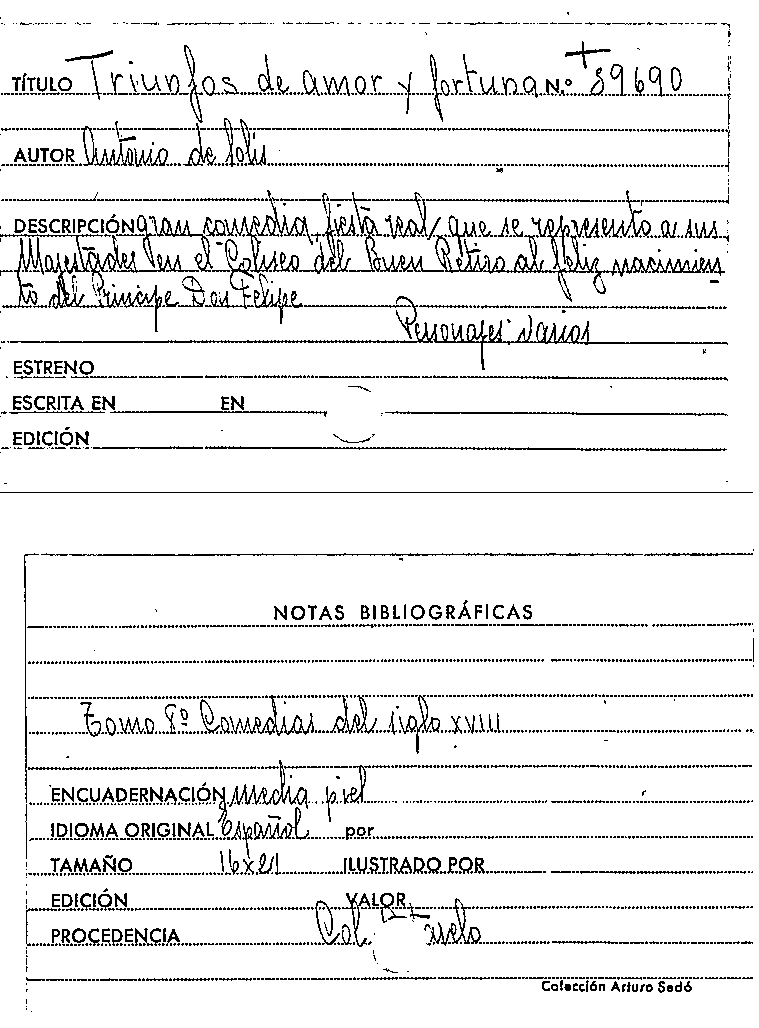 TÍTULO Triunfos de amor y fortuna N.º 89690
AUTOR Antonio de Solis
DESCRIPCIÓN gran comedia, fiesta real, que se represento a sus
Majestades en el Coliseo del Buen Retiro al feliz nacimien
to del Principe Don Felipe
Personajes: Varios
ESTRENO
ESCRITA EN EN
EDICIÓN
NOTAS BIBLIOGRÁFICAS
Tomo 8º Comedias del siglo XVIII
ENCUADERNACIÓN media piel
IDIOMA ORIGINAL Español por
TAMAÑO 16x21 ILUSTRADO POR
EDICIÓN VALOR
PROCEDENCIA Col.
Colección Arturo Sedó